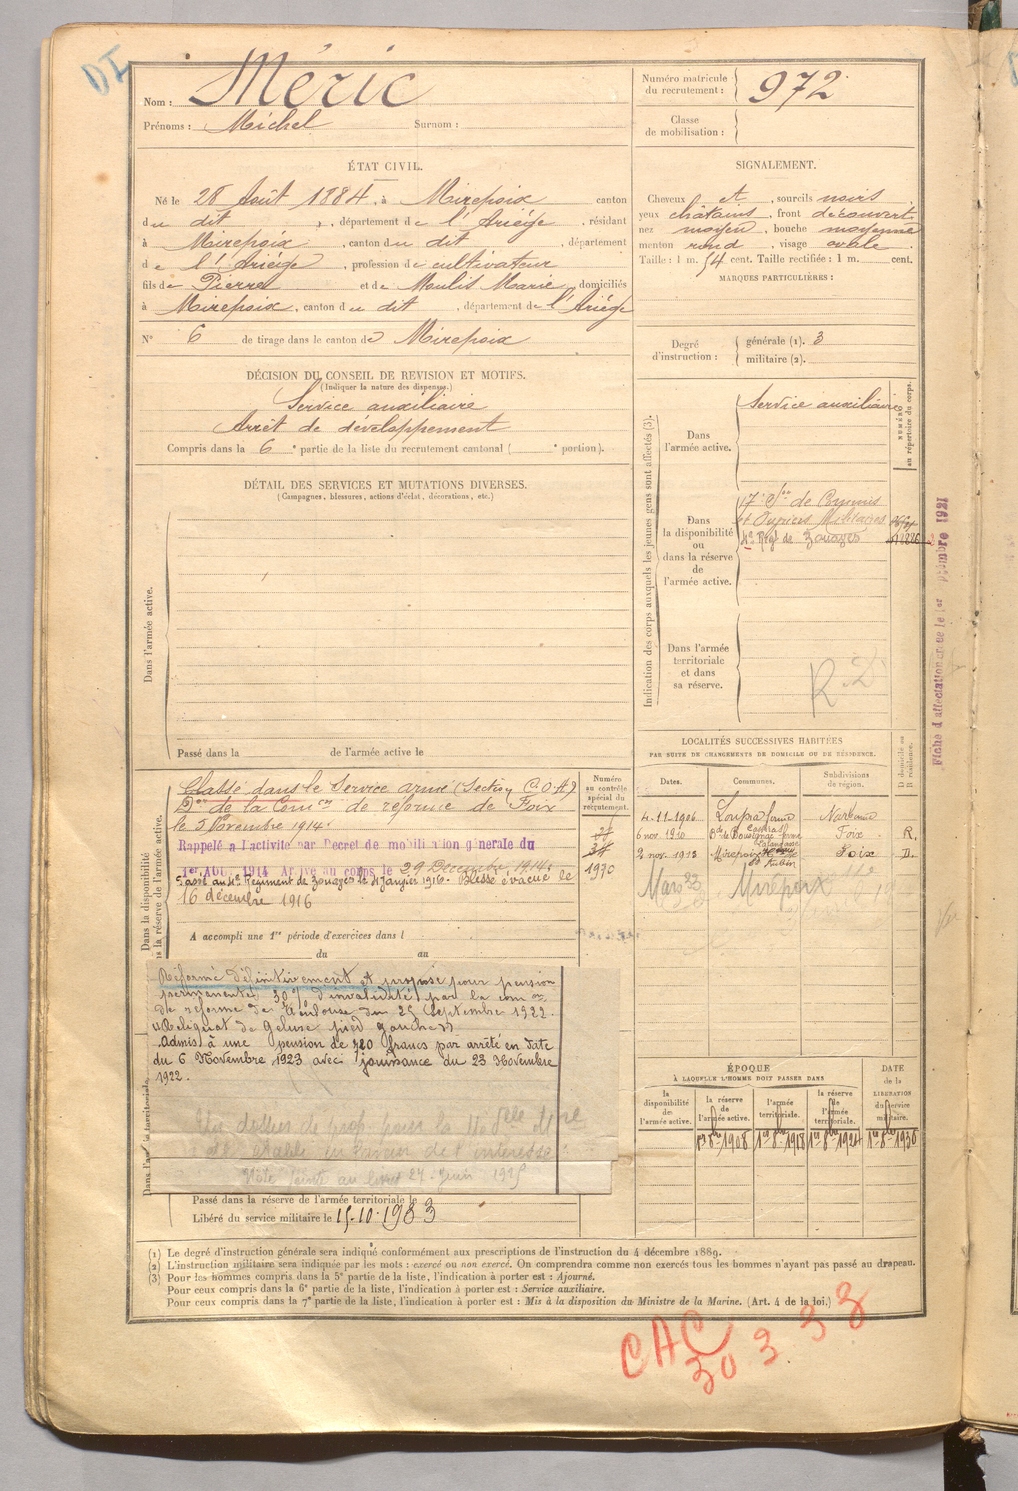 DI
Nom : Méric
Prénoms : Michel Surnom :
Numéro matricule du recrutement : 972
Classe de mobilisation :
ÉTAT CIVIL.
Né le 28 Août 1884, à Mirepoix canton
du dit, département de l'Ariège, résidant
à Mirepoix, canton du dit, département
de l'Ariège, profession de cultivateur
fils de Pierre et de Moulis Marie, domiciliés
à Mirepoix, canton du dit, département de l'Ariège
N° 6 de tirage dans le canton de Mirepoix
SIGNALEMENT.
Cheveux et, sourcils noirs
yeux châtains, front découvert
nez moyen, bouche moyenne
menton rond, visage ovale
Taille : 1 m. 54 cent. Taille rectifiée : 1 m. cent.
MARQUES PARTICULIÈRES :
Degré d'instruction : générale (1). 3
militaire (2).
DÉCISION DU CONSEIL DE REVISION ET MOTIFS.
(Indiquer la nature des dispenses.)
Service auxiliaire
Arrêt de développement
Compris dans la 6e partie de la liste du recrutement cantonal ( e portion).
DÉTAIL DES SERVICES ET MUTATIONS DIVERSES.
(Campagnes, blessures, actions d'éclat, décorations, etc.)
Dans l'armée active.
Passé dans la de l'armée active le
Indication des corps auxquels les jeunes gens sont affectés (3).
NUMÉRO au répertoire du corps.
Dans l'armée active.
Service auxiliaire
Dans la disponibilité ou dans la réserve de l'armée active.
17e Son de Commis
et Ouvriers Militaires
4e Régt de Zouaves
Dans l'armée territoriale et dans sa réserve.
R.D
Fiche d'affectation créée le 1er septembre 1921
LOCALITÉS SUCCESSIVES HABITÉES
PAR SUITE DE CHANGEMENTS DE DOMICILE OU DE RÉSIDENCE.
Dates. Communes. Subdivisions de région. D domicile ou R résidence.
4-11-1906 Narbonne
6 nov. 1910 Foix R.
2 nov. 1913 Mirepoix Foix D.
Mars 22 Mirepoix
Dans la disponibilité
la réserve de l'armée active.
Numéro au contrôle spécial du recrutement.
1930
Classé dans le Service armé (Section C.O.A)
Don de la Comon de réforme de Foix
le 5 Novembre 1914.
Rappelé à l'activité par Décret de mobilisation générale du
1er Août 1914 Arrivé au corps le 29 Décembre 1914.
Passé au 4e Régiment de Zouaves le 4 Janvier 1916. Blessé évacué le
16 décembre 1916
A accompli une 1re période d'exercices dans l
du au
Réformé définitivement et proposé pour pension
permanente, 30 % d'invalidité, par la comon
de réforme de Toulouse du 25 Septembre 1922.
"Reliquat de gelure pied gauche"
Admis à une pension de 720 francs par arrêté en date
du 6 Novembre 1923 avec jouissance du 23 Novembre
1922.
Note jointe au livret 27 Juin 1925
Passé dans la réserve de l'armée territoriale le
Libéré du service militaire le 15-10-1933
ÉPOQUE
À LAQUELLE L'HOMME DOIT PASSER DANS
la disponibilité de l'armée active. la réserve de l'armée active. l'armée territoriale. la réserve de l'armée territoriale. DATE de la LIBÉRATION du service militaire.
1er 8bre 1908 1er 8bre 1918 1er 8bre 1924 1er 8bre 1930
(1) Le degré d'instruction générale sera indiqué conformément aux prescriptions de l'instruction du 4 décembre 1889.
(2) L'instruction militaire sera indiquée par les mots : exercé ou non exercé. On comprendra comme non exercés tous les hommes n'ayant pas passé au drapeau.
(3) Pour les hommes compris dans la 5e partie de la liste, l'indication à porter est : Ajourné.
Pour ceux compris dans la 6e partie de la liste, l'indication à porter est : Service auxiliaire.
Pour ceux compris dans la 7e partie de la liste, l'indication à porter est : Mis à la disposition du Ministre de la Marine. (Art. 4 de la loi.)
CAC
30333